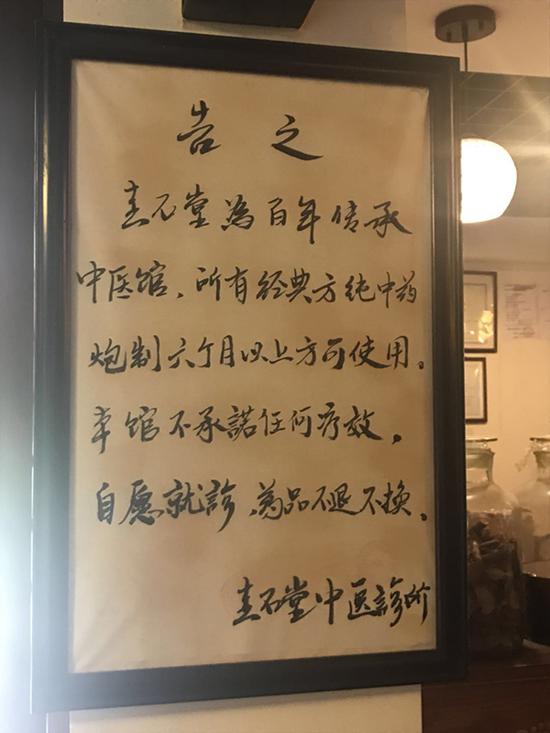 告之
圭石堂為百年传承
中医馆、所有经典方纯中药
炮制六个月以上方可使用。
本馆不承諾任何疗效，
自愿就診、药品不退不换。
圭石堂中医診所